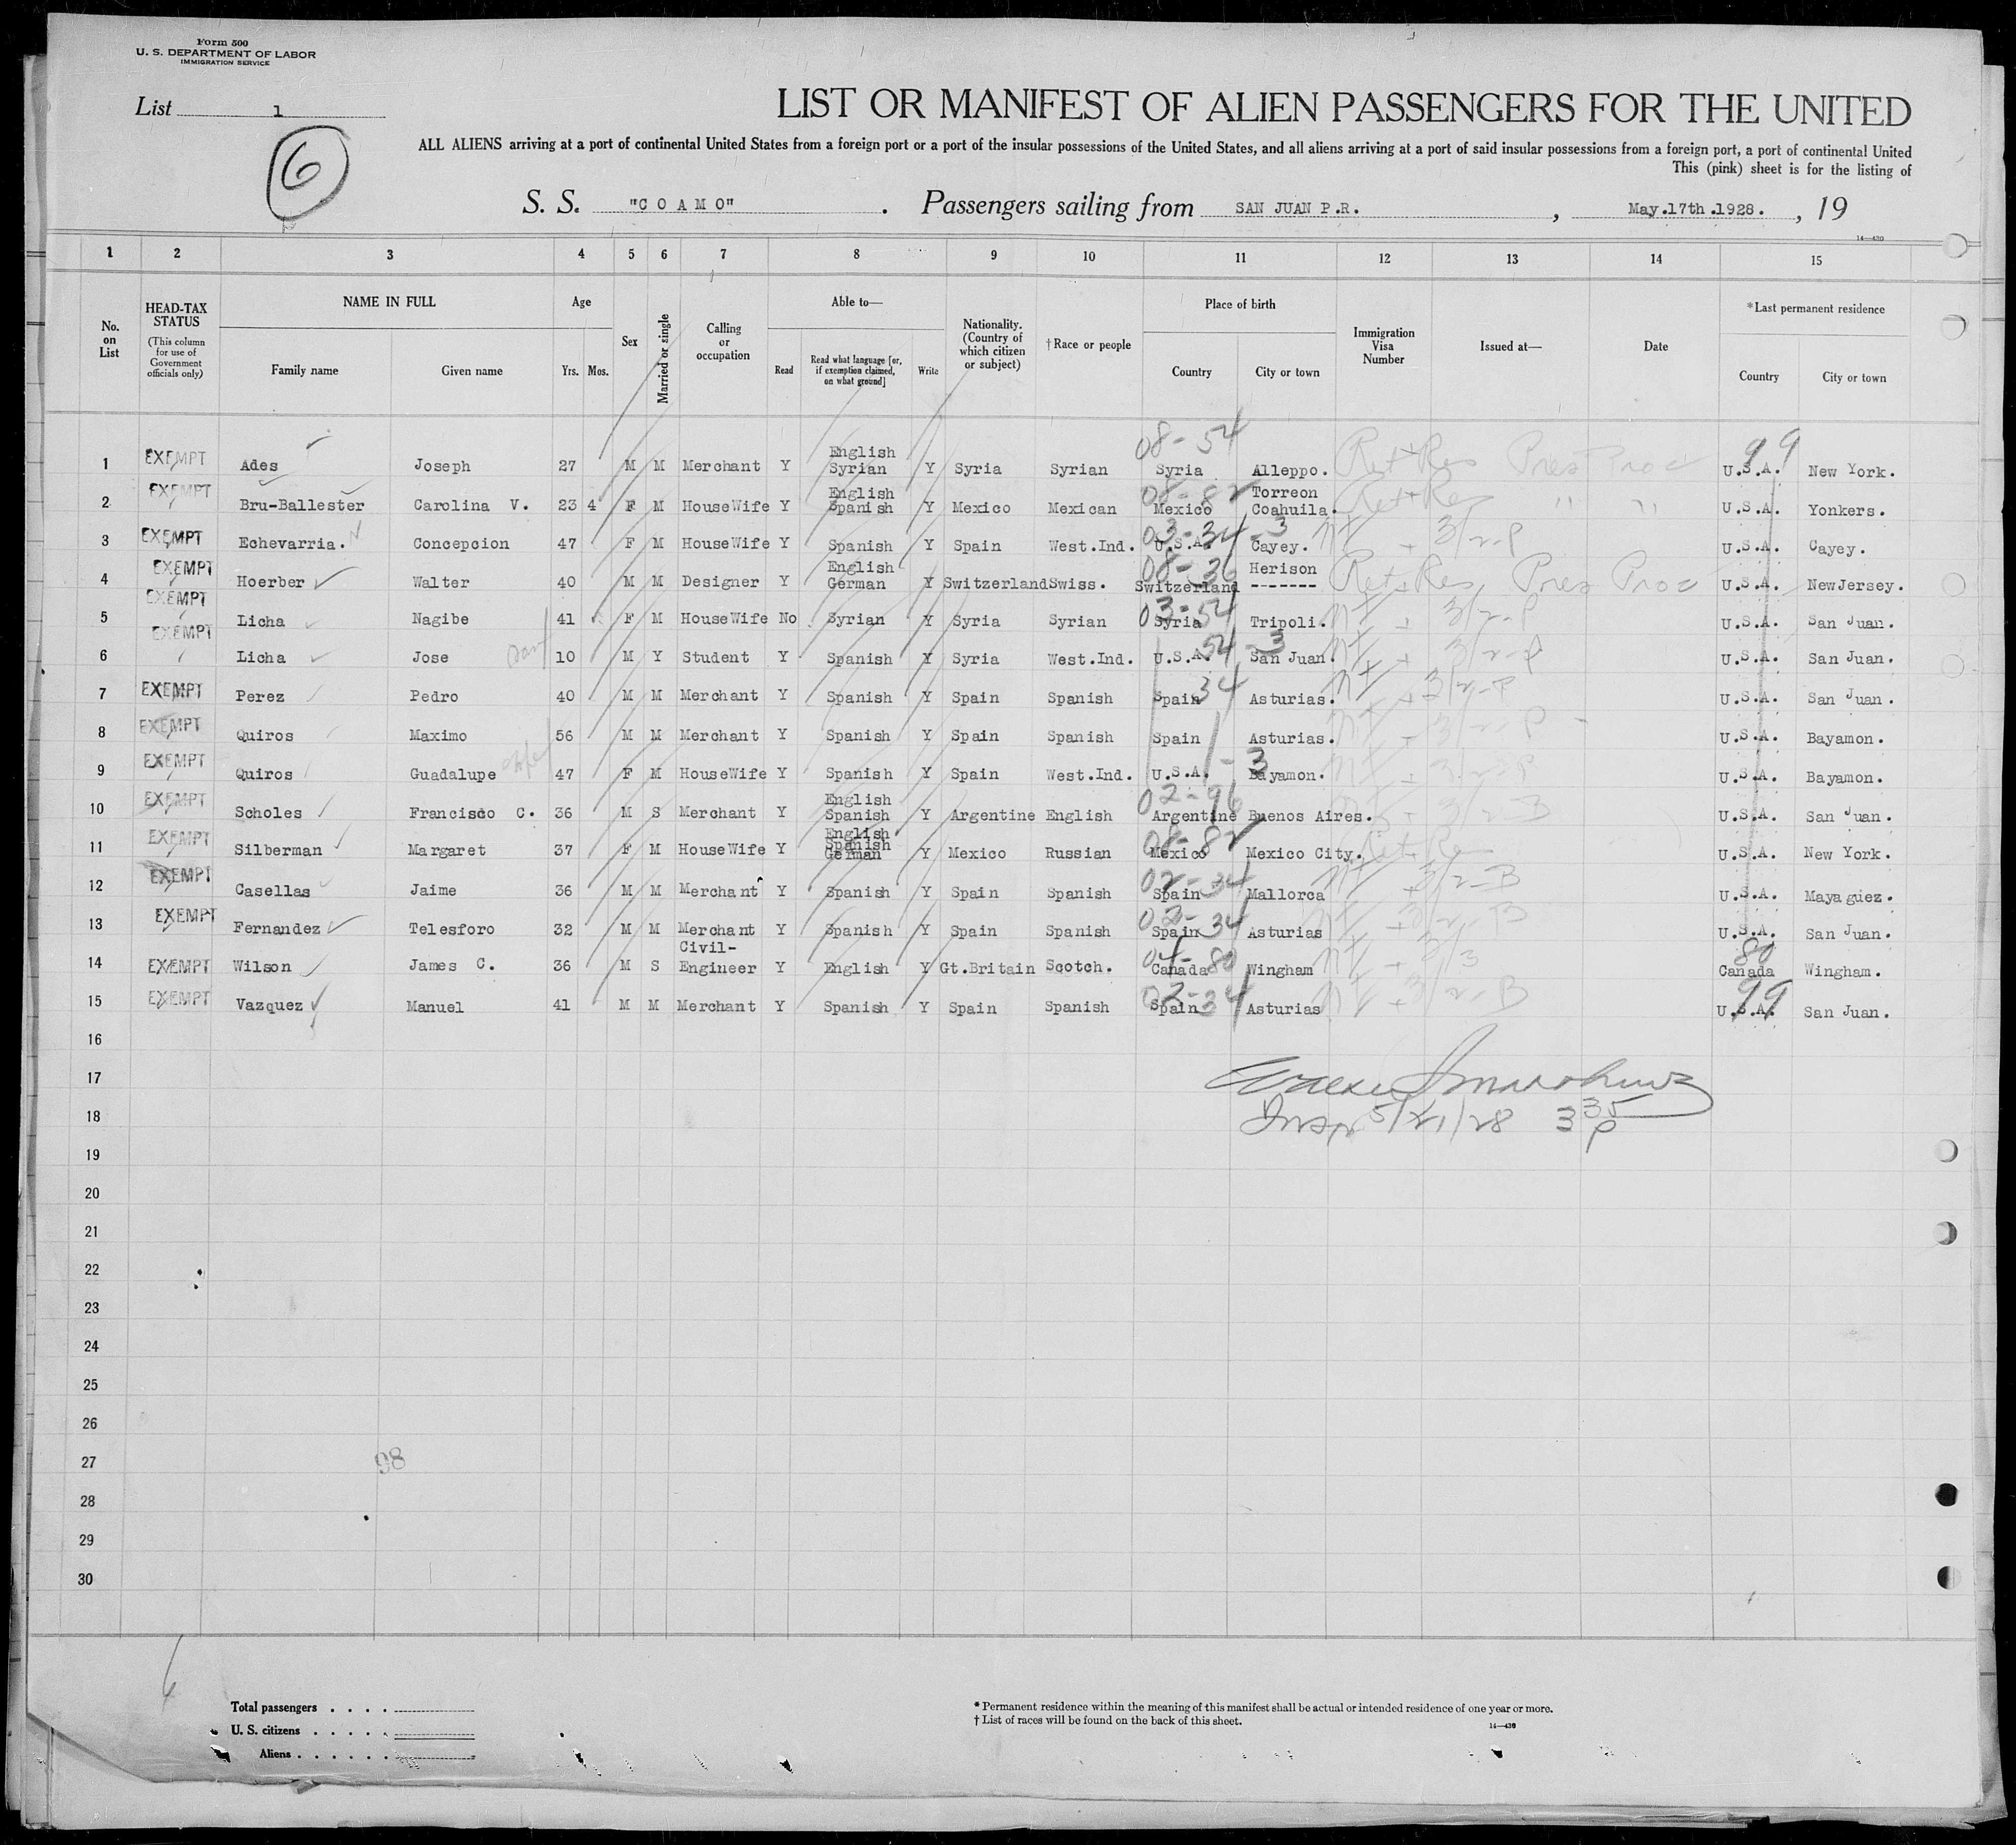 Form 500
U. S. DEPARTMENT OF LABOR
IMMIGRATION SERVICE
List 1
6
LIST OR MANIFEST OF ALIEN PASSENGERS FOR THE UNITED
ALL ALIENS arriving at a port of continental United States from a foreign port or a port of the insular possessions of the United States, and all aliens arriving at a port of said insular possessions from a foreign port, a port of continental United
This (pink) sheet is for the listing of
S. S. "C O A M O" . Passengers sailing from SAN JUAN P.R. , May.17th.1928. , 19
14—430
1 2 3 4 5 6 7 8 9 10 11 12 13 14 15
No. on List
HEAD-TAX STATUS
(This column for use of Government officials only)
NAME IN FULL
Family name Given name
Age
Yrs. Mos.
Sex
Married or single
Calling or occupation
Able to—
Read
Read what language [or, if exemption claimed, on what ground]
Write
Nationality. (Country of which citizen or subject)
†Race or people
Place of birth
Country City or town
Immigration Visa Number
Issued at—
Date
*Last permanent residence
Country City or town
1 EXEMPT Ades Joseph 27 M M Merchant Y English Syrian Y Syria Syrian 08-54 Syria Alleppo. Ret+Res Pres Proc 99 U.S.A. New York.
2 EXEMPT Bru-Ballester Carolina V. 23 4 F M HouseWife Y English Spanish Y Mexico Mexican 08-82 Mexico Torreon Coahuila. Ret+Res " " U.S.A. Yonkers.
3 EXEMPT Echevarria. Concepcion 47 F M HouseWife Y Spanish Y Spain West.Ind. 03-34-3 U.S.A. Cayey. 3/2-P U.S.A. Cayey.
4 EXEMPT Hoerber Walter 40 M M Designer Y English German Y Switzerland Swiss. 08-36 Switzerland Herison ------- Ret+Res Pres Proc U.S.A. NewJersey.
5 EXEMPT Licha Nagibe 41 F M HouseWife No Syrian Y Syria Syrian 03-54 Syria Tripoli. 3/2-P U.S.A. San Juan.
6 EXEMPT Licha Jose 10 M Y Student Y Spanish Y Syria West.Ind. 54-3 U.S.A. San Juan. 3/2-P U.S.A. San Juan.
7 EXEMPT Perez Pedro 40 M M Merchant Y Spanish Y Spain Spanish Spain 34 Asturias. 3/2-P U.S.A. San Juan.
8 EXEMPT Quiros Maximo 56 M M Merchant Y Spanish Y Spain Spanish Spain Asturias. 3/2-P U.S.A. Bayamon.
9 EXEMPT Quiros Guadalupe wife 47 F M HouseWife Y Spanish Y Spain West.Ind. U.S.A. -3 Bayamon. 3/2-P U.S.A. Bayamon.
10 EXEMPT Scholes Francisco C. 36 M S Merchant Y English Spanish Y Argentine English 02-96 Argentine Buenos Aires. 3/2-B U.S.A. San Juan.
11 EXEMPT Silberman Margaret 37 F M HouseWife Y English Spanish German Y Mexico Russian 08-82 Mexico Mexico City. Ret+Res U.S.A. New York.
12 EXEMPT Casellas Jaime 36 M M Merchant Y Spanish Y Spain Spanish 02-34 Spain Mallorca 3/2-B U.S.A. Mayaguez.
13 EXEMPT Fernandez Telesforo 32 M M Merchant Y Spanish Y Spain Spanish 02-34 Spain Asturias 3/2-B U.S.A. San Juan.
14 EXEMPT Wilson James C. 36 M S Civil- Engineer Y English Y Gt.Britain Scotch. 04-80 Canada Wingham 3/3 80 Canada Wingham.
15 EXEMPT Vazquez Manuel 41 M M Merchant Y Spanish Y Spain Spanish 02-34 Spain Asturias 3/2-B 99 U.S.A. San Juan.
16
17
18 Insp 5/21/28 3 35 P
19
20
21
22
23
24
25
26
27 98
28
29
30
Total passengers . . . .
U. S. citizens . . . . .
Aliens . . . . . .
* Permanent residence within the meaning of this manifest shall be actual or intended residence of one year or more.
† List of races will be found on the back of this sheet.
14—430